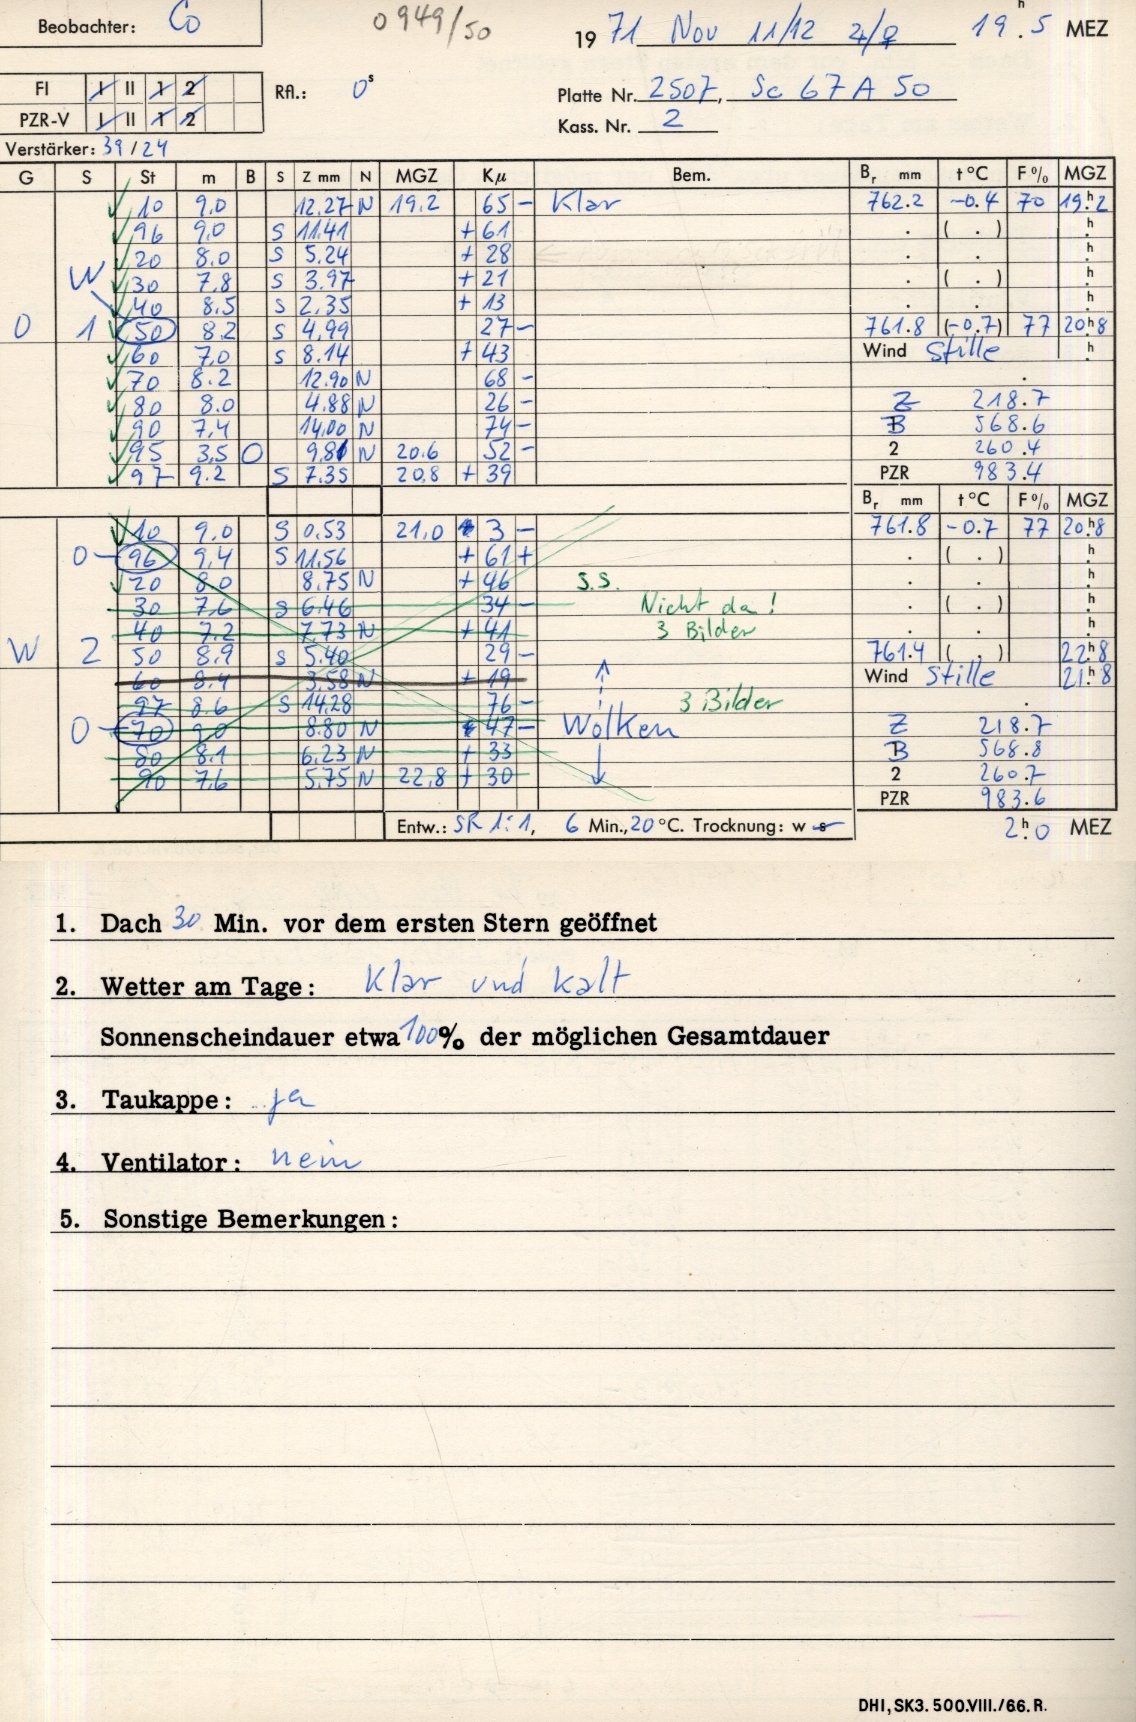 Beobachter: Co 0949/50 1971 Nov 11/12 ♃/♀ 19h.5 MEZ
FI I II 1 2 RA.: 0s Platte Nr. 2507, Sc 67 A 50
PZR-V I II 1 2 Kass. Nr. 2
Verstärker: 39/24
G S St m B S Z mm N MGZ Kμ Bem. Br mm t °C F % MGZ
10 9.0 12.27 N 19.2 65 - Klar 762.2 -0.4 70 19h.2
96 9.0 S 11.41 + 61 . ( . ) h.
20 8.0 S 5.24 + 28 . . h.
W 30 7.8 S 3.97 + 21 . ( . ) h.
40 8.5 S 2.35 + 13 . . h.
0 1 50 8.2 S 4.99 27 - 761.8 (-0.7) 77 20h8
60 7.0 S 8.14 + 43 Wind Stille h.
70 8.2 12.90 N 68 - .
80 8.0 4.88 N 26 - Z 218.7
90 7.4 14.00 N 74 - B 568.6
95 3.5 O 9.81 N 20.6 52 - 2 260.4
97 9.2 S 7.35 20.8 + 39 PZR 983.4
Br mm t °C F % MGZ
10 9.0 S 0.53 21.0 3 - 761.8 -0.7 77 20h8
0 - 96 9.4 S 11.56 + 61 + . ( . ) h.
20 8.0 8.75 N + 46 S.S. . . h.
30 7.6 S 6.46 34 - Nicht da! . ( . ) h.
40 7.2 7.73 N + 41 3 Bilder . . h.
W 2 50 8.9 S 5.40 29 - 761.4 ( . ) 22h8
60 8.4 3.58 N + 19 Wind Stille 21h8
97 8.6 S 14.28 76 - 3 Bilder .
0 - 70 9.0 8.80 N 47 - Wolken Z 218.7
80 8.1 6.23 N + 33 B 568.8
90 7.6 5.75 N 22.8 + 30 2 260.7
PZR 983.6
Entw.: SR 1:1, 6 Min., 20 °C. Trocknung: w s 2h.0 MEZ
1. Dach 30 Min. vor dem ersten Stern geöffnet
2. Wetter am Tage: Klar und kalt
Sonnenscheindauer etwa 100% der möglichen Gesamtdauer
3. Taukappe: ja
4. Ventilator: nein
5. Sonstige Bemerkungen:
DHI, SK3. 500.VIII./66. R.